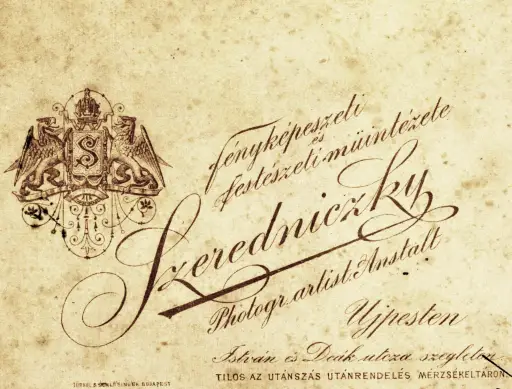 S
Fényképeszeti
és
festészeti műintézete
Szeredniczky
Photogr. artist. Anstalt
Ujpesten
István és Deák utcza szegletén.
TILOS AZ UTÁNSZÁS UTÁNRENDELÉS MÉRZSÉKELTÁRON.
BUDAPEST